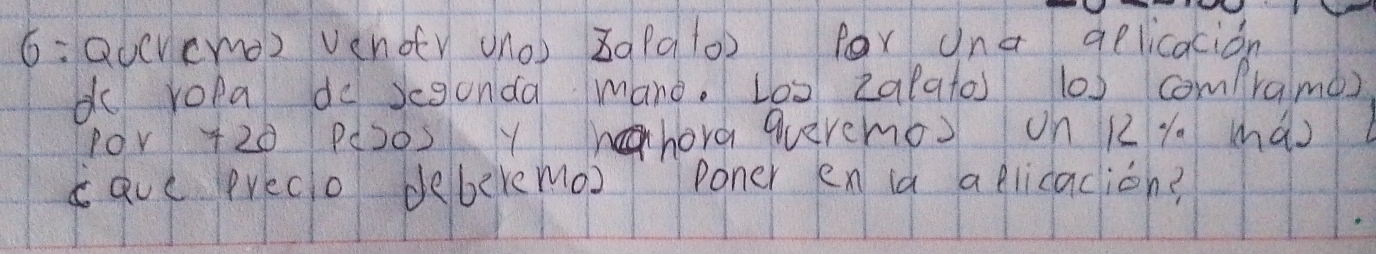 6: Queremos vender unos zapatos por una aplicación
de ropa de segunda mano. Los zapatos los compramos
por 720 pesos y ahora queremos un 12 % más
¿que precio deberemos poner en la aplicación?